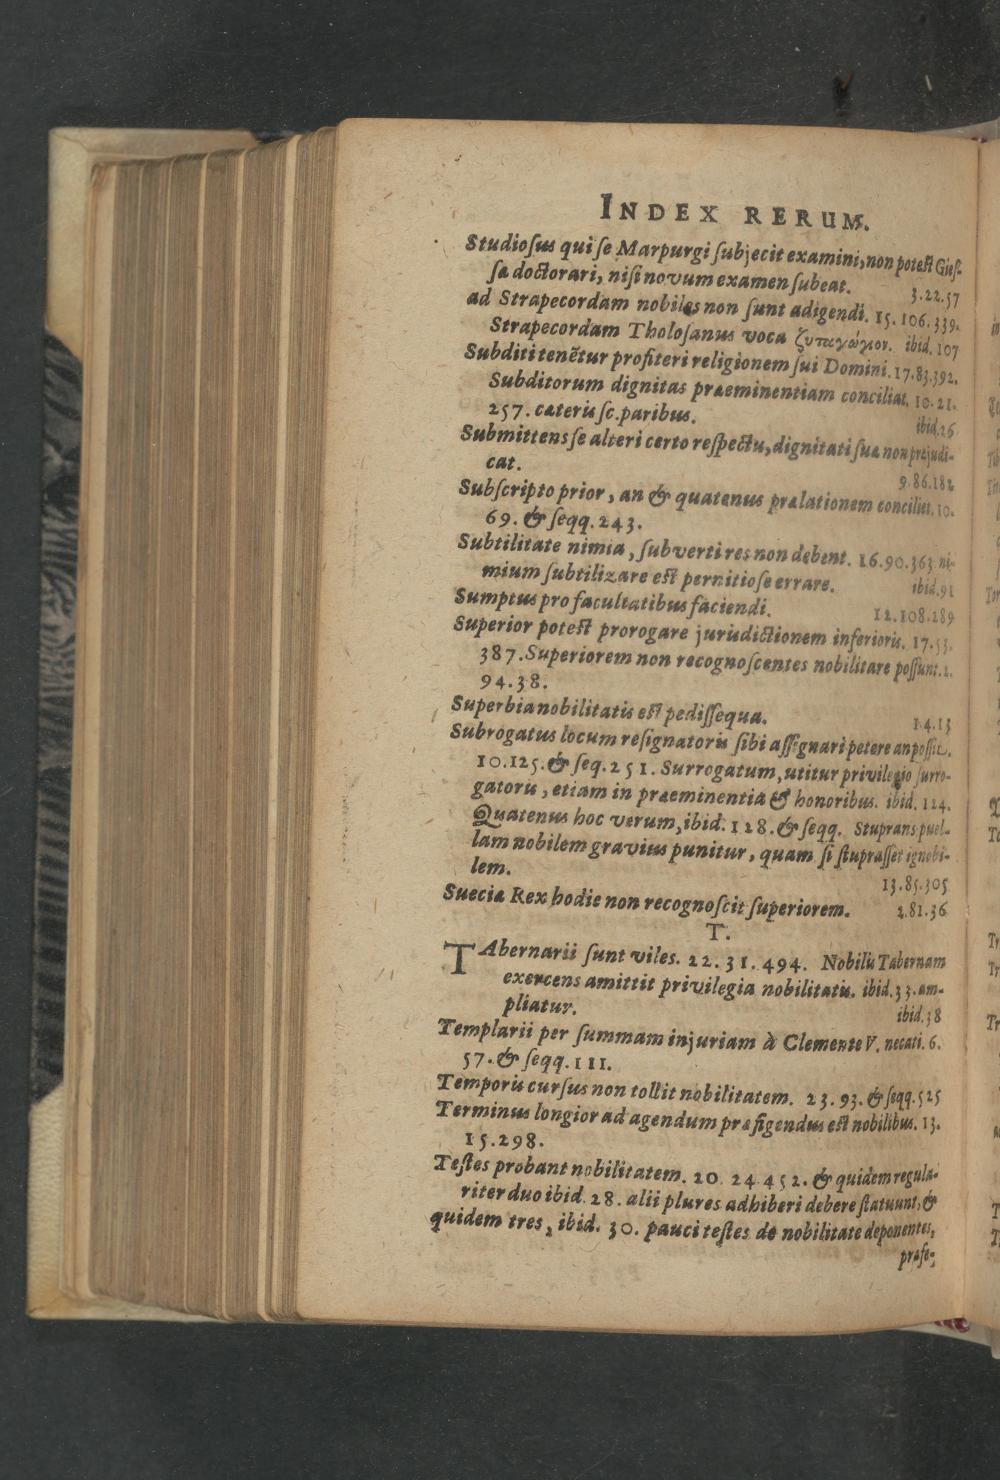 INDEX RERUM.
Studioſus qui ſe Marpurgi ſubjecit examini, non poteſt Gieſ-
ſa doctorari, niſi novum examen ſubeat. 3.22.57
ad Strapecordam nobiles non ſunt adigendi. 15.106.339.
Strapecordam Tholoſanus voca ζυπαγώγιον. ibid. 107
Subditi tenẽtur profiteri religionem ſui Domini. 17.83.392.
Subditorum dignitas præeminentiam conciliat. 10.21.
257. cæteris ſc. paribus. ibid.26
Submittens ſe alteri certo reſpectu, dignitati ſuæ non præjudi-
cat. 9.86.182
Subſcripto prior, an & quatenus prælationem conciliet. 10.
69. & ſeqq. 243.
Subtilitate nimia, ſubverti res non debent. 16.90.363 ni-
mium ſubtilizare eſt pernitioſe errare. ibid.91
Sumptus pro facultatibus faciendi. 12.108.289
Superior poteſt prorogare jurisdictionem inferioris. 17.53.
387. Superiorem non recognoſcentes nobilitare poſſunt. 2.
94.38.
Superbia nobilitatis eſt pediſſequa. 1.4.13
Subrogatus locum reſignatoris ſibi aſſignari petere an poſſit.
10.125. & ſeq. 251. Surrogatum, utitur privilegio ſurro-
gatoris, etiam in præeminentia & honoribus. ibid. 124.
Quatenus hoc verum, ibid. 128. & ſeqq. Stuprans puel-
lam nobilem gravius punitur, quam ſi ſtupraſſet ignobi-
lem. 13.85.305
Sueciæ Rex hodie non recognoſcit ſuperiorem. 2.81.36
T.
TAbernarii ſunt viles. 22.31.494. Nobilis Tabernam
exercens amittit privilegia nobilitatis. ibid.33. am-
pliatur. ibid.38
Templarii per ſummam injuriam à Clemente V. necati. 6.
57. & ſeqq. 111.
Temporis curſus non tollit nobilitatem. 23.93. & ſeqq. 525
Terminus longior ad agendum præfigendus eſt nobilibus. 13.
15.298.
Teſtes probant nobilitatem. 20. 24 452. & quidem regula-
riter duo ibid. 28. alii plures adhiberi debere ſtatuunt, &
quidem tres, ibid. 30. pauci teſtes de nobilitate deponentes,
præfe-